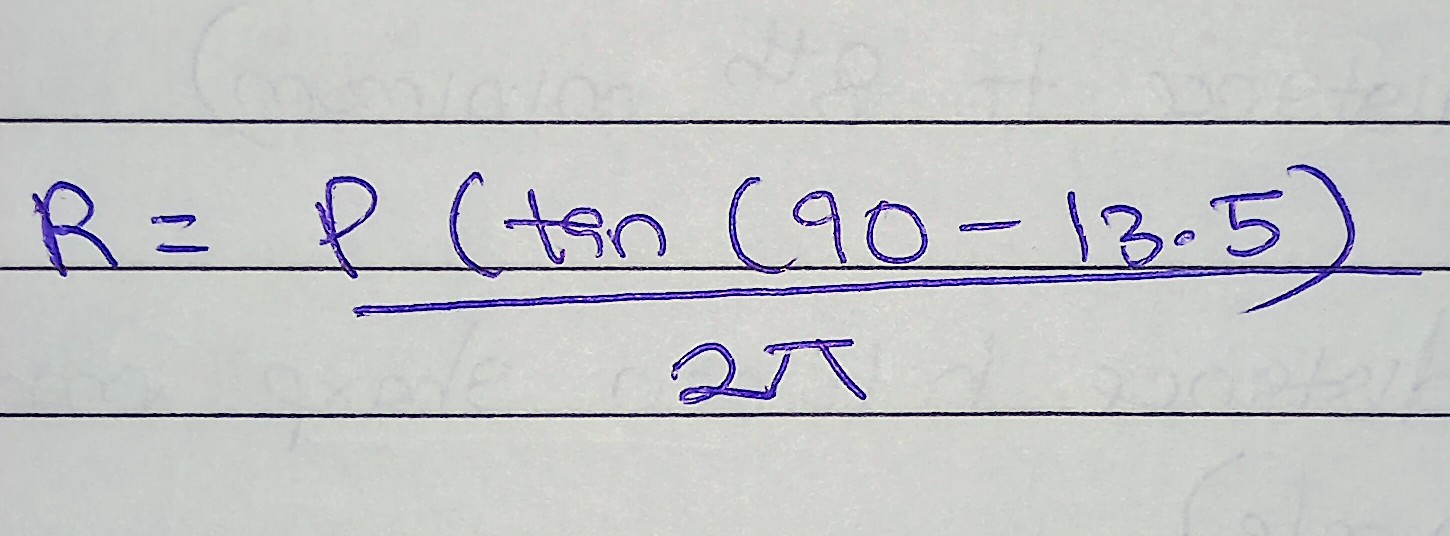 R = P (tan (90 - 13.5)
2π